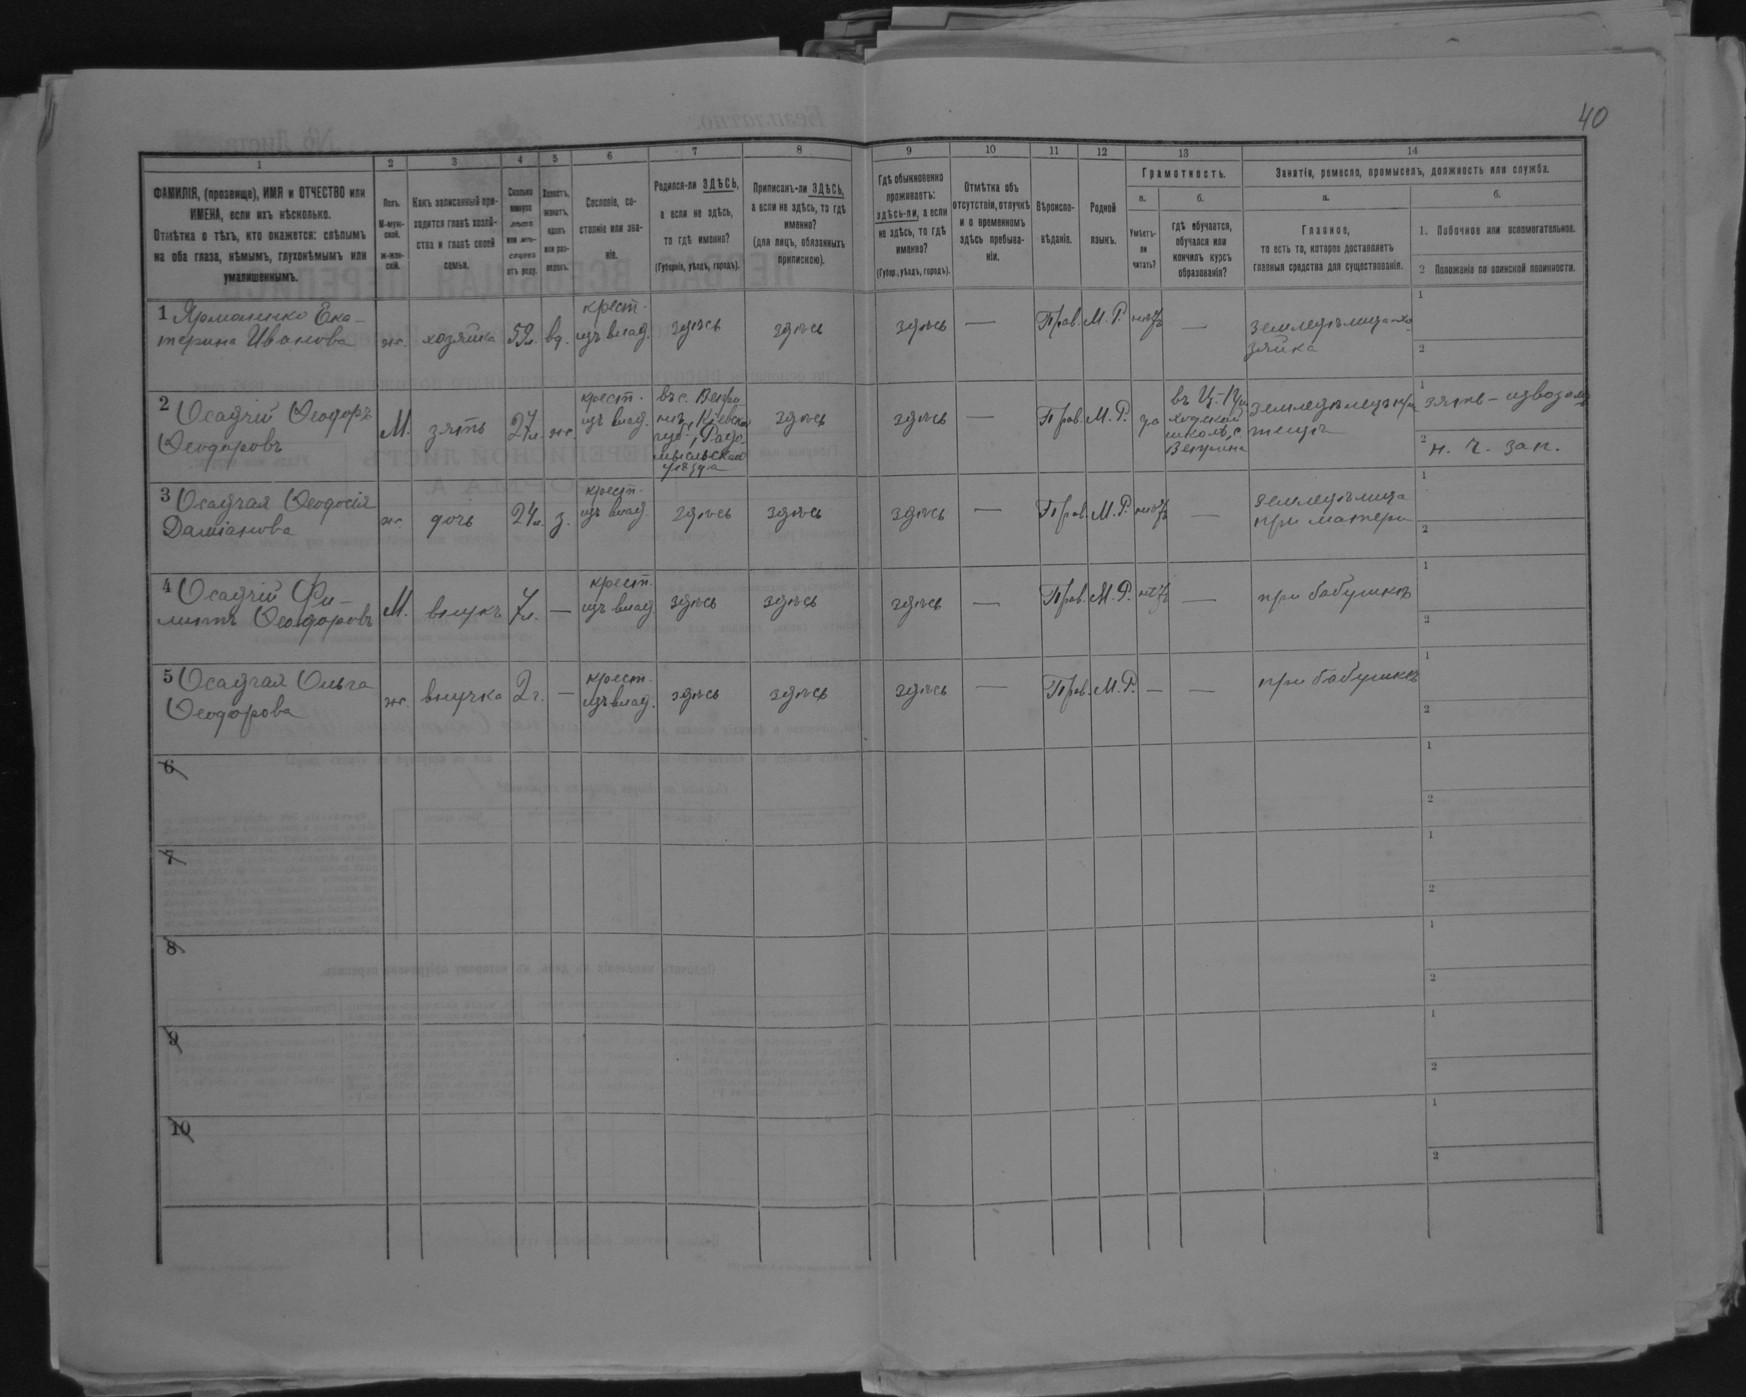 40
1 2 3 4 5 6 7 8 9 10 11 12 13 14
ФАМИЛІЯ, (прозвище), ИМЯ и ОТЧЕСТВО или
ИМЕНА, если ихъ нѣсколько.
Отмѣтка о тѣхъ, кто окажется: слѣпымъ
на оба глаза, нѣмымъ, глухонѣмымъ или
умалишеннымъ.
Полъ.
М-муж-
ской.
ж-жен-
скій.
Какъ записанный при-
ходится главѣ хозяй-
ства и главѣ своей
семьи.
Сколько
минуло
лѣтъ
или мѣ-
сяцевъ
отъ роду.
Холостъ,
женатъ,
вдовъ
или раз-
веденъ.
Сословіе, со-
стояніе или зва-
ніе.
Родился-ли ЗДѢСЬ,
а если не здѣсь,
то гдѣ именно?
(Губернія, уѣздъ, городъ).
Приписанъ-ли ЗДѢСЬ,
а если не здѣсь, то гдѣ
именно?
(для лицъ, обязанныхъ
припискою).
Гдѣ обыкновенно
проживаетъ:
здѣсь-ли, а если
не здѣсь, то гдѣ
именно?
(Губер., уѣздъ, городъ).
Отмѣтка объ
отсутствіи, отлучкѣ
и о временномъ
здѣсь пребыва-
ніи.
Вѣроиспо-
вѣданіе.
Родной
языкъ.
Грамотность.
а.
Умѣетъ-
ли
читать?
б.
гдѣ обучается,
обучался или
кончилъ курсъ
образованія?
Занятіе, ремесло, промыселъ, должность или служба.
а.
Главное,
то есть то, которое доставляетъ
главныя средства для существованія.
б.
1. Побочное или вспомогательное.
2 Положеніе по воинской повинности.
1 Ярмоленко Ека-
терина Иванова
ж. хозяйка 59л. вд.
крест.
изъ влад.
здѣсь здѣсь здѣсь — Прав. М. Р. нѣтъ —
земледѣлица-хо
зяйка
1
2
2 Осадчій Ѳеодоръ
Ѳеодоровъ
М. зять 27л. ж.
крест.
изъ влад.
въ с. Вепри
нѣ, Кіевской
губ., Радо
мысльскаго
уѣзда
здѣсь здѣсь — Прав. М. Р. да
въ Ц.-При
ходской
школѣ, с.
Веприна
земледѣлецъ при
тещѣ
1 зять - извозомъ
2 н. ч. зап.
3 Осадчая Ѳеодосія
Даміанова
ж. дочь 24л. з.
крест.
изъ влад.
здѣсь здѣсь здѣсь — Прав. М. Р. нѣтъ —
земледѣлица
при матери
1
2
4 Осадчій Фи-
липпъ Ѳеодоровъ
М. внукъ 7л. —
крест.
изъ влад.
здѣсь здѣсь здѣсь — Прав. М. Р. нѣтъ —
при бабушкѣ
1
2
5 Осадчая Ольга
Ѳеодорова
ж. внучка 2г. —
крест.
изъ влад.
здѣсь здѣсь здѣсь — Прав. М. Р. — —
при бабушкѣ
1
2
6
1
2
7
1
2
8
1
2
9
1
2
10
1
2